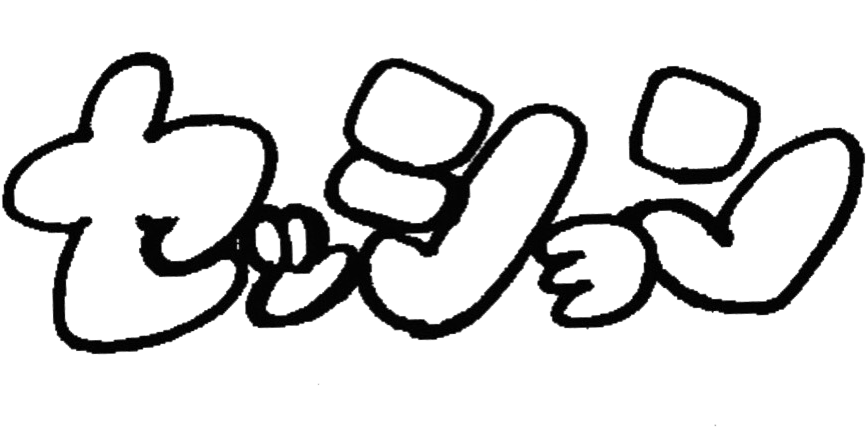 セッション